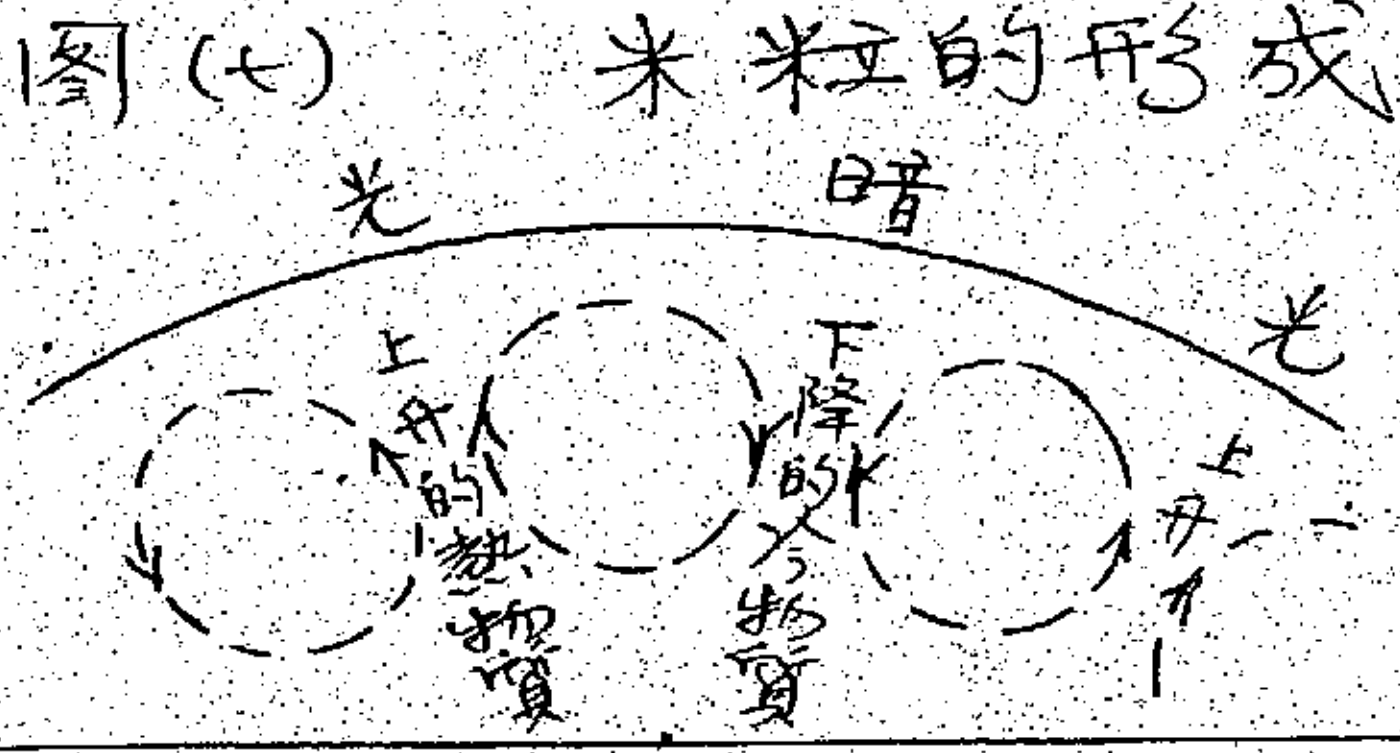 图(七) 米粒的形成
光
暗
光
上升的熱物質
下降的冷物質
上升